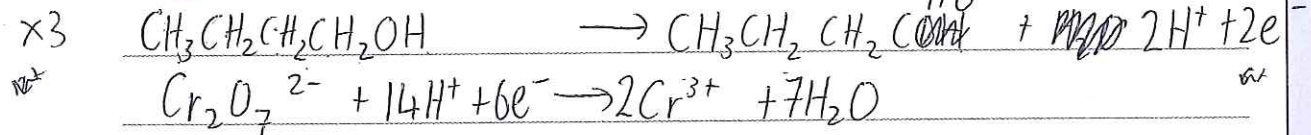 ×3 CH₃CH₂CH₂CH₂OH → CH₃CH₂CH₂C + 2H⁺ + 2e
Cr₂O₇²⁻ + 14H⁺ + 6e⁻ → 2Cr³⁺ + 7H₂O